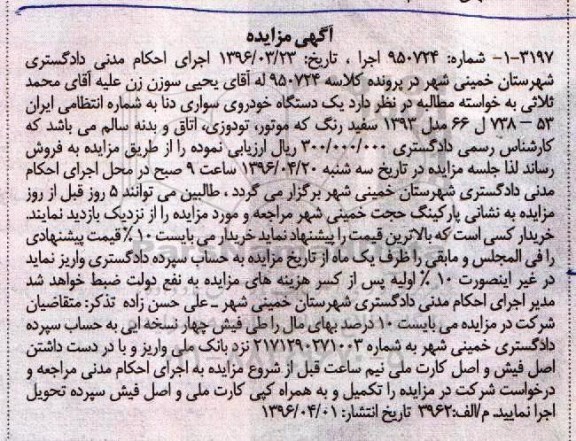 آگهی مزایده
۳۱۹۷-۱- شماره: ۹۵۰۷۲۴ اجرا ، تاریخ: ۱۳۹۶/۰۳/۲۳ اجرای احکام مدنی دادگستری
شهرستان خمینی شهر در پرونده کلاسه ۹۵۰۷۲۴ له آقای یحیی سوزن زن علیه آقای محمد
ثلاثی به خواسته مطالبه در نظر دارد یک دستگاه خودروی سواری دنا به شماره انتظامی ایران
۵۳ – ۷۳۸ ل ۶۶ مدل ۱۳۹۳ سفید رنگ که موتور، تودوزی، اتاق و بدنه سالم می باشد که
کارشناس رسمی دادگستری ۳۰۰/۰۰۰/۰۰۰ ریال ارزیابی نموده را از طریق مزایده به فروش
رساند لذا جلسه مزایده در تاریخ سه شنبه ۱۳۹۶/۰۴/۲۰ ساعت ۹ صبح در محل اجرای احکام
مدنی دادگستری شهرستان خمینی شهر برگزار می گردد ، طالبین می توانند ۵ روز قبل از روز
مزایده به نشانی پارکینگ حجت خمینی شهر مراجعه و مورد مزایده را از نزدیک بازدید نمایند.
خریدار کسی است که بالاترین قیمت را پیشنهاد نماید خریدار می بایست ۱۰ ٪ قیمت پیشنهادی
را فی المجلس و مابقی را ظرف یک ماه از تاریخ مزایده به حساب سپرده دادگستری واریز نماید
در غیر اینصورت ۱۰ ٪ اولیه پس از کسر هزینه های مزایده به نفع دولت ضبط خواهد شد
مدیر اجرای احکام مدنی دادگستری شهرستان خمینی شهر ـ علی حسن زاده تذکر: متقاضیان
شرکت در مزایده می بایست ۱۰ درصد بهای مال را طی فیش چهار نسخه ایی به حساب سپرده
دادگستری خمینی شهر به شماره ۲۱۷۱۲۹۰۲۷۱۰۰۳ نزد بانک ملی واریز و با در دست داشتن
اصل فیش و اصل کارت ملی نیم ساعت قبل از شروع مزایده به اجرای احکام مدنی مراجعه و
درخواست شرکت در مزایده را تکمیل و به همراه کپی کارت ملی و اصل فیش سپرده تحویل
اجرا نمایید. م/الف:۳۹۶۲ تاریخ انتشار: ۱۳۹۶/۰۴/۰۱